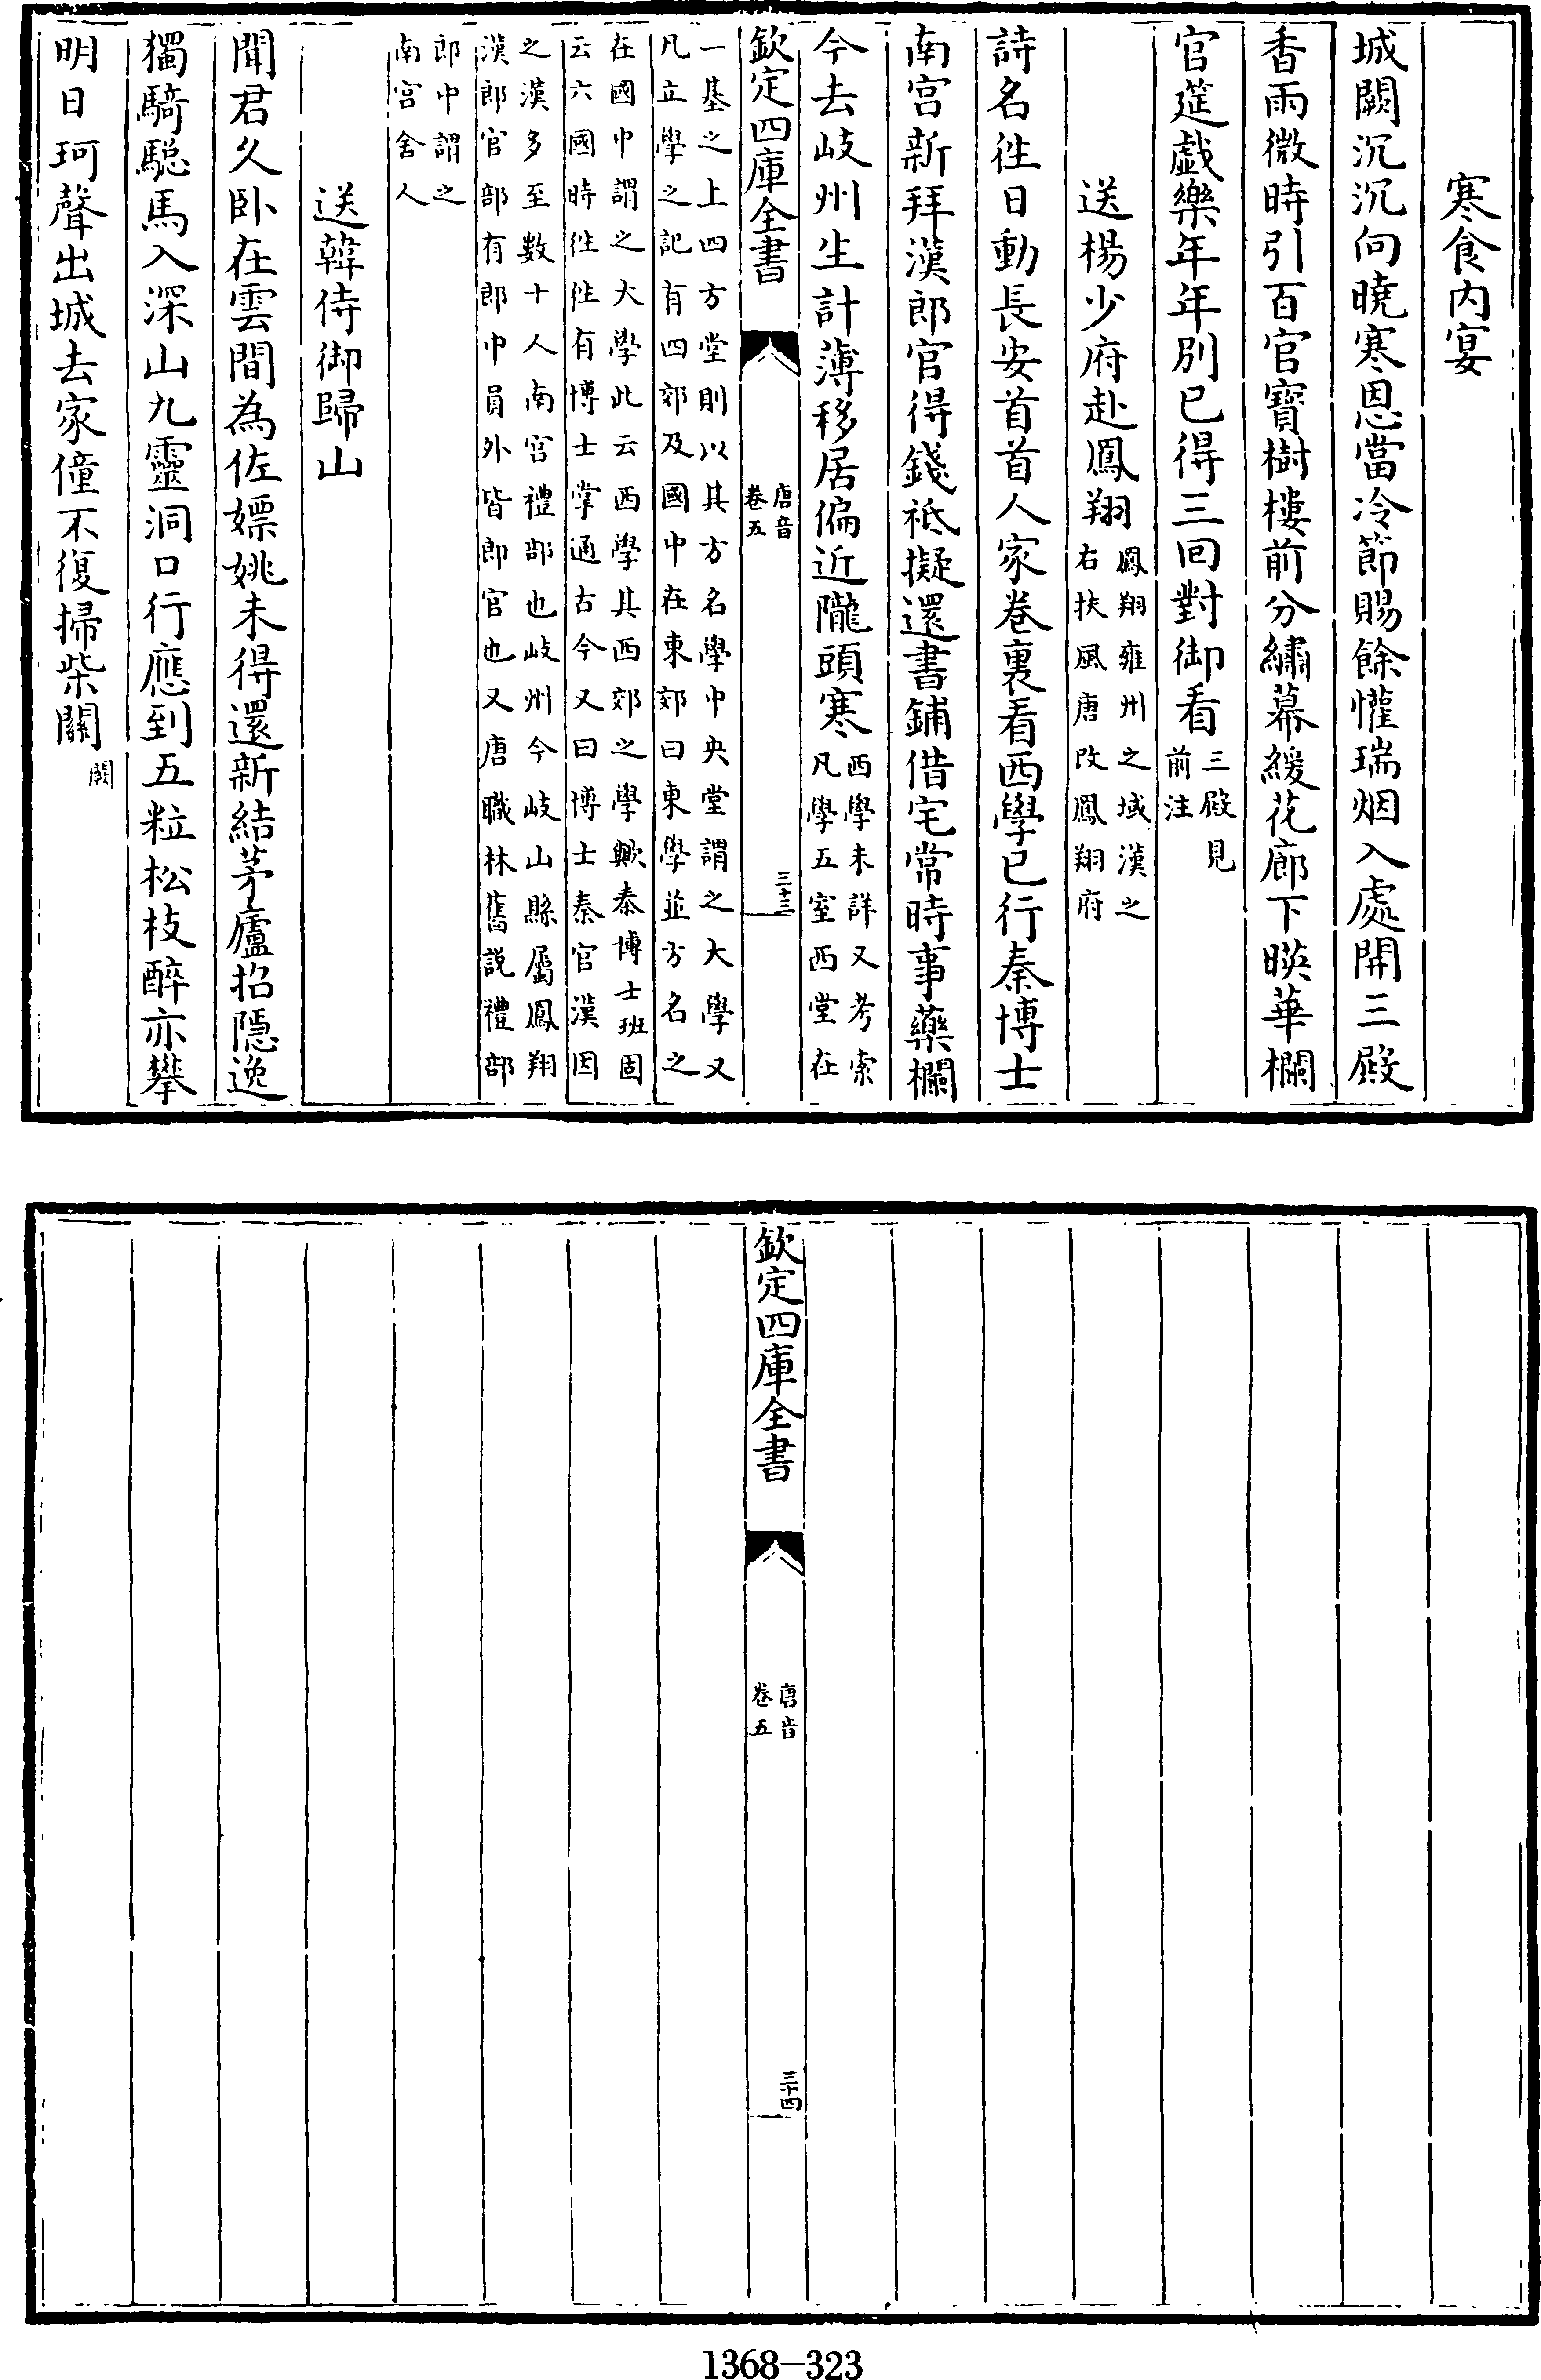 寒食内宴
城闕沉沉向曉寒恩當冷節賜餘懽瑞烟入處開三殿
香雨微時引百官寳樹樓前分繡幕綵花廊下暎華欄
官筵戯樂年年别已得三回對御看三殿見
前注
送楊少府赴鳳翔鳳翔雍州之域漢之
右扶風唐改鳳翔府
詩名徃日動長安首首人家卷裏看西學已行秦博士
南宫新拜漢郎官得錢袛擬還書鋪借宅常時事藥欄
今去岐州生計薄移居偏近隴頭寒西學未詳又考索
凡學五室西堂在
欽定四庫全書
唐音
卷五
三十三
一基之上四方堂則以其方名學中央堂謂之大學又
凡立學之記有四郊及國中在東郊曰東學並方名之
在國中謂之大學此云西學其西郊之學歟秦博士班固
云六國時徃徃有博士掌通古今又曰博士秦官漢因
之漢多至數十人南宫禮部也岐州今岐山縣屬鳳翔
漢郎官部有郎中員外皆郎官也又唐職林舊説禮部
郎中謂之
南宫舍人
送韓侍御歸山
聞君久卧在雲間為佐嫖姚未得還新結茅廬招隠逸
獨騎驄馬入深山九靈洞口行應到五粒松枝醉亦攀
明日珂聲出城去家僮不復掃柴關
闕
欽定四庫全書
唐音
卷五
三十四
1368-323